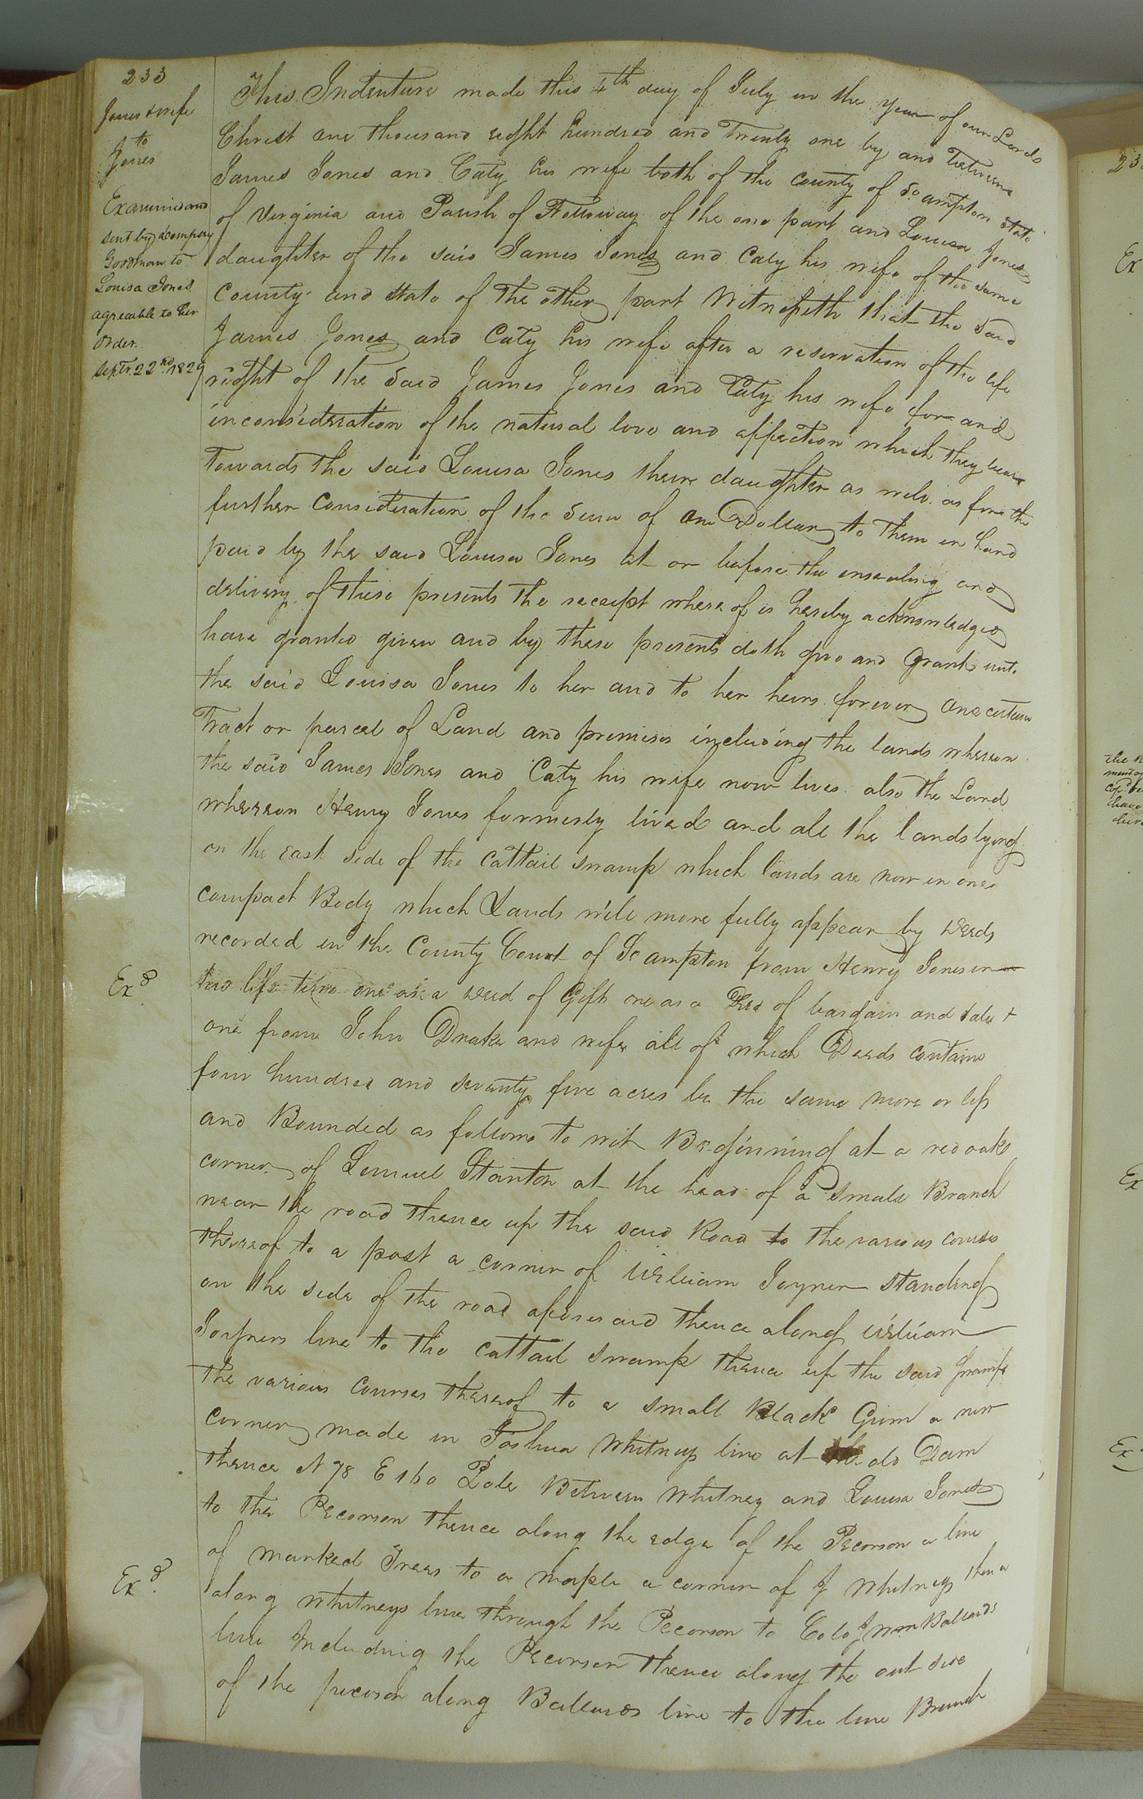 233
Jones & wife
to
Jones
Examined and
sent by Dempsey
Goodman to
Louisa Jones
agreeable to her
order.
Septr. 22nd 1829
This Indenture made this 4th day of July in the year of our Lord
Christ one thousand eight hundred and Twenty one by and between
James Jones and Caty his wife both of the county of So ampton state
of Virginia and Parish of Nottoway of the one part and Louisa Jones
daughter of the said James Jones and Caty his wife of the same
County and state of the other part Witnesseth that the said
James Jones and Caty his wife after a reservation of the life
right of the said James Jones and Caty his wife for and
inconsideration of the natural love and affection which they bear
Towards the said Louisa Jones their daughter as well as for the
further consideration of the sum of one Dollar to them in hand
paid by the said Louisa Jones at or before the ensealing and
delivery of these presents the receipt whereof is hereby acknowledged
have granted given and by these presents doth give and Grant unto
the said Louisa Jones to her and to her heirs forever one certain
Tract or parcel of Land and premises including the lands whereon
the said James Jones and Caty his wife now lives also the Land
whereon Henry Jones formerly lived and all the lands lying
on the east side of the Cattail swamp which lands are now in one
compact Body which Lands will more fully appear by deeds
recorded in the County Court of So ampton from Henry Jones in
his life time one as a deed of Gift one as a Deed of bargain and sale &
one from John Drake and wife all of which Deeds contains
four hundred and seventy five acres be the same more or less
and Bounded as follows to wit Beginning at a red oak
corner of Lemuel Stanton at the head of a small Branch
near the road thence up the said Road to the various courses
thereof to a post a corner of William Joyner standing
on the side of the road aforesaid thence along William
Joyners line to the cattail swamp thence up the said swamp
the various courses thereof to a small Black Gum a new
corner made in Joshua Whitneys line at the old Dam
thence N 78 E 160 Pole Between Whitney and Louisa Jones
to the Pecorson thence along the edge of the Pecorson a line
of marked Trees to a maple a corner of J Whitneys thence
along Whitneys line through the Pecorson to Colo Ballards
line Including the Pecorson thence along the out side
of the pecorson along Ballards line to the line Branch
Exd.
Exd.
23
Ex
Ex
Ex